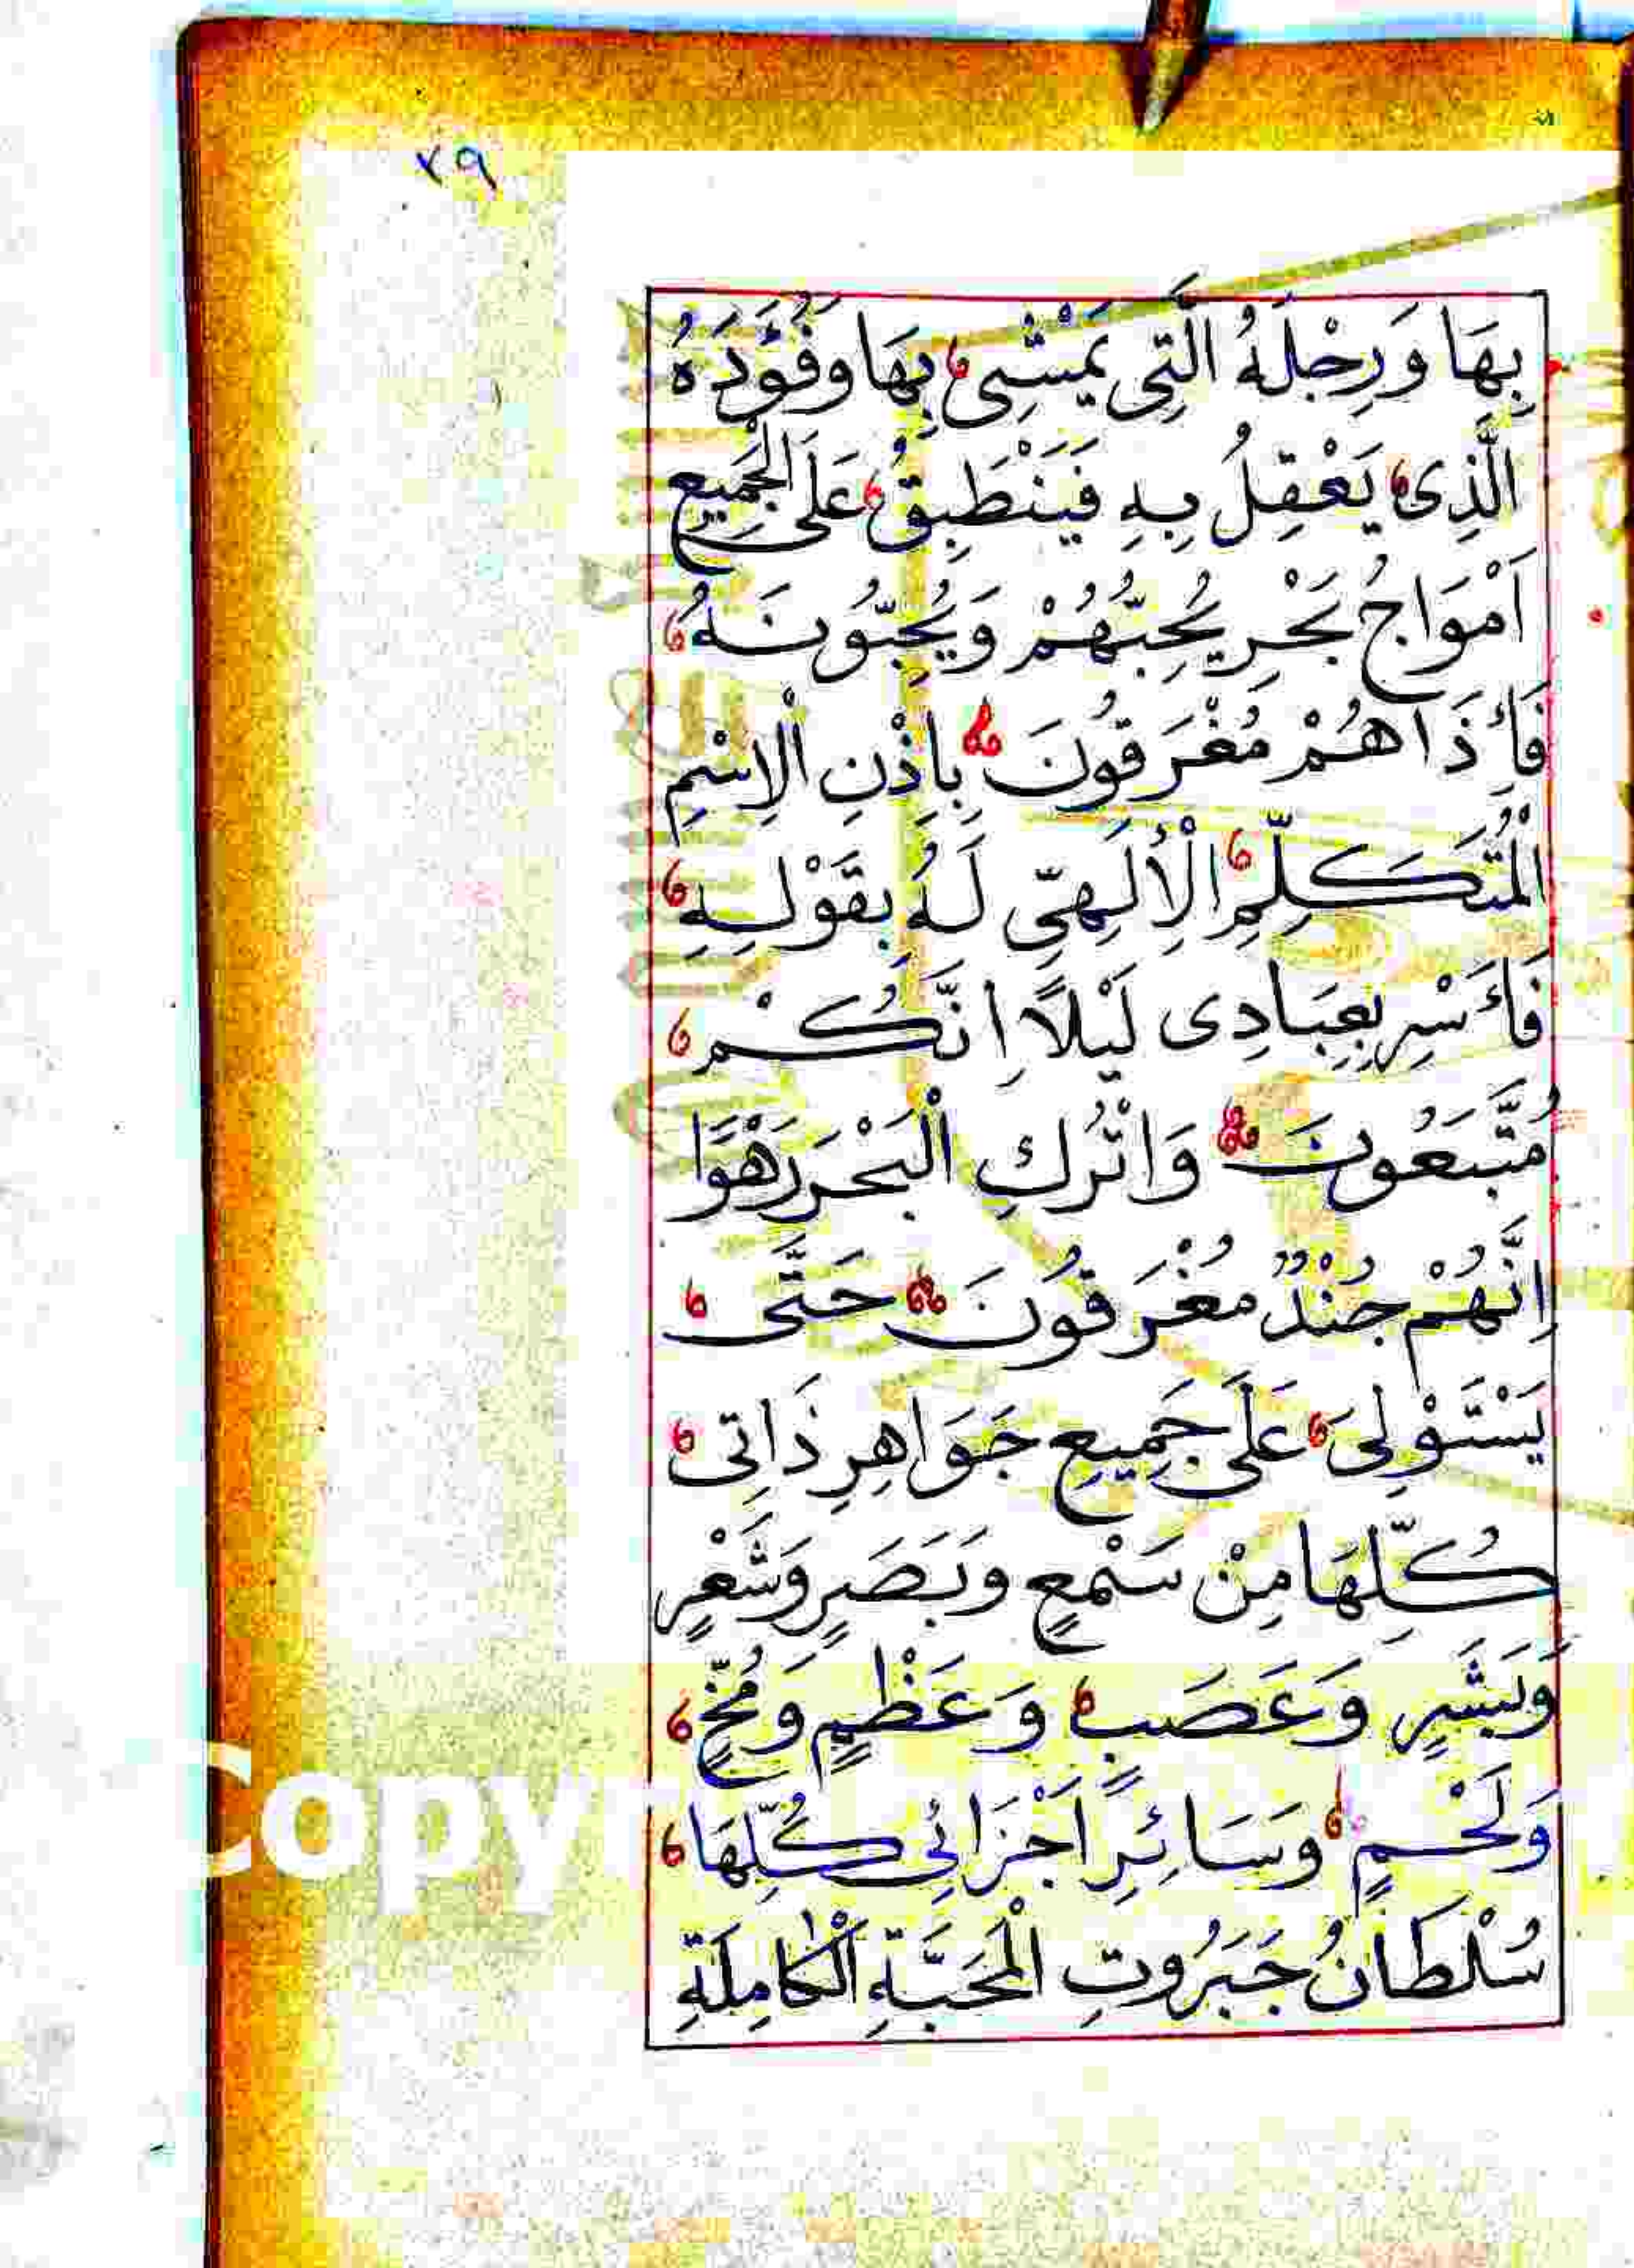 ٢٩
بِهَا وَرِجْلَهُ الَّتِى يَمْشِى بِهَا وَفُؤَدَهُ
الَّذِى يَعْقِلُ بِهِ فَيَنْطَبِقُ عَلَى الْجَمِيعِ
اَمْوَاجُ بَحْرِ يُحِبُّهُمْ وَيُحِبُّونَهُ
فَأَذَاهُمْ مُغْرَقُونَ بِاِذْنِ الْاِسْمِ
الْمُتَكَلِّمِ الْأِلَهِىِّ لَهُ بِقَوْلِهِ
فَأَسْرِ بِعِبَادِى لَيْلًا اِنَّكُمْ
مُتَّبَعُونَ وَاتْرُكِ الْبَحْرَ رَهْوًا
اِنَّهُمْ جُنْدٌ مُغْرَقُونَ حَتَّى
يَسْتَوْلِىَ عَلَى جَمِيعِ جَوَاهِرِ ذَاتِى
كُلِّهَا مِنْ سَمْعٍ وَبَصَرٍ وَشَعْرٍ
وَبَشَرٍ وَعَصَبٍ وَعَظْمٍ وَمُخٍّ
وَلَحْمٍ وَسَائِرِ اَجْزَائِى كُلِّهَا
سُلْطَانُ جَبَرُوتِ الْمَحَبَّةِ الْكَامِلَةِ
Copy